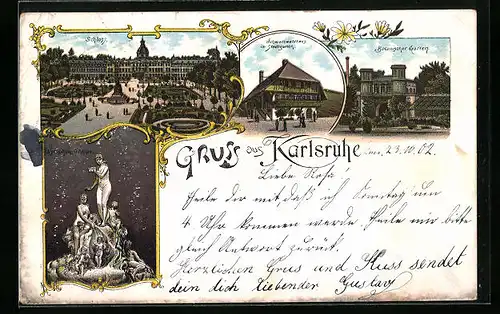 Schloss.
Schwarzwaldhaus
im Stadtgarten
Botanischer Garten
Gruss aus Karlsruhe
den 23.10.02
Liebe Rosa!
Theile dir mit daß ich Sonntag um
4 Uhr kommen werde. Theile mir bitte
gleich Antwort zurück.
Herzlichen Grus und Kuss sendet
dein dich liebender Gustav